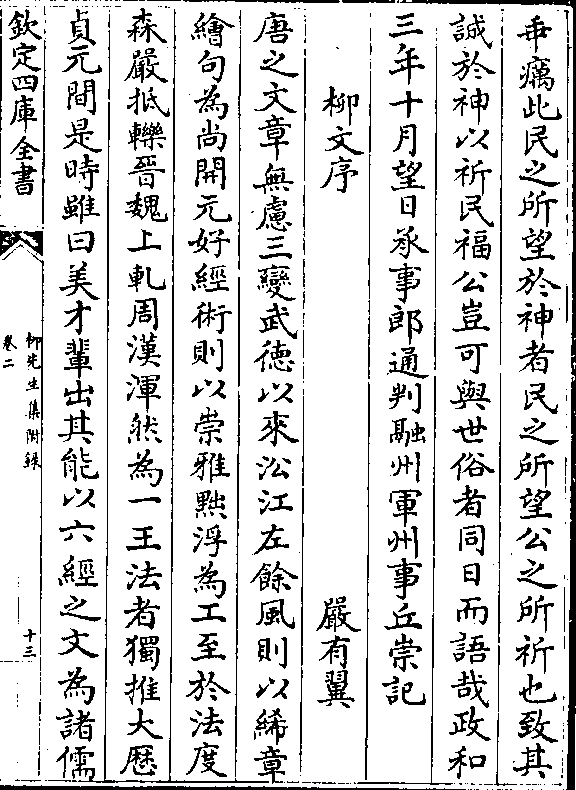 乖癘此民之所望於神者民之所望公之所祈也致其
誠於神以祈民福公豈可與世俗者同日而語哉政和
三年十月望日承事郎通判融州軍州事丘崇記
柳文序　嚴有翼
唐之文章無慮三變武徳以來㳂江左餘風則以絺章
繪句為尚開元好經術則以崇雅黜浮為工至於法度
森嚴抵轢晉魏上軋周漢渾然為一王法者獨推大厯
貞元間是時雖曰美才輩出其能以六經之文為諸儒
欽定四庫全書
柳先生集附録
卷二
十三